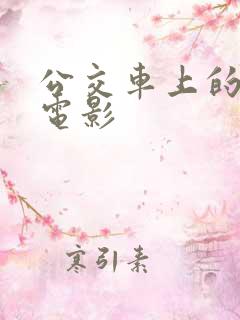 公交車上的
電影
寒引素